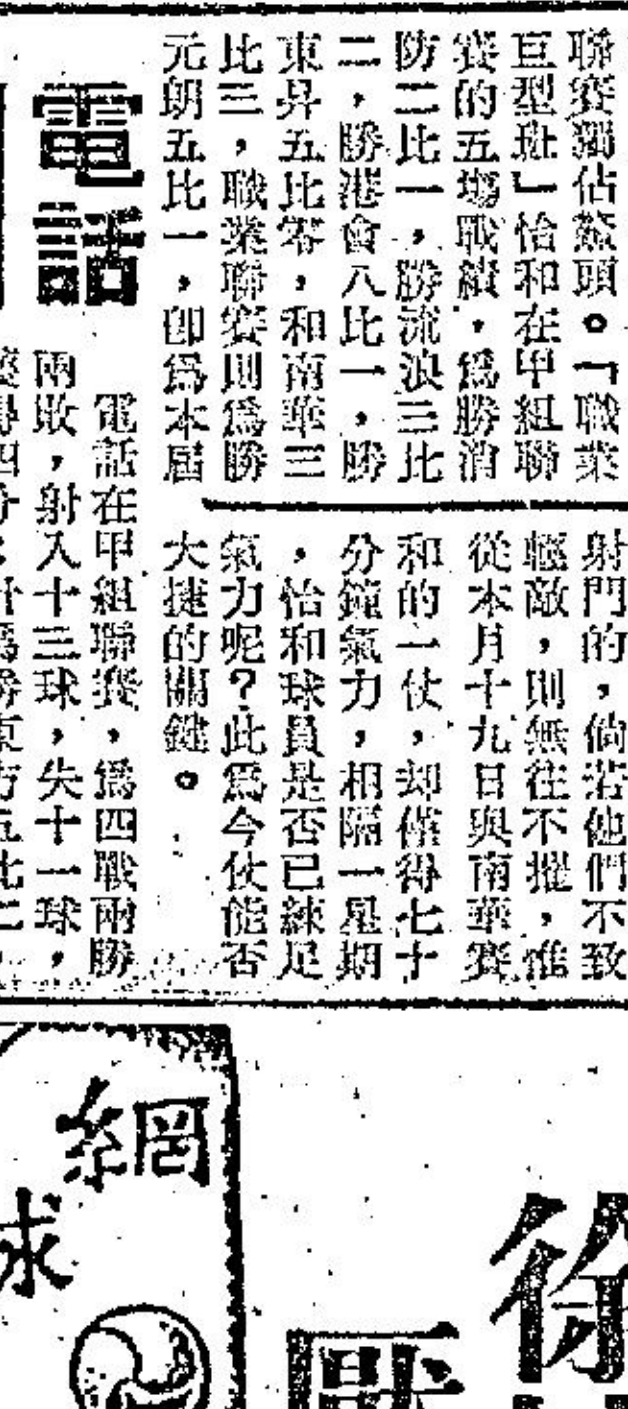 聯賽獨佔鰲頭。「職業
巨型班」怡和在甲組聯
賽的五塲戰績,爲勝消
防二比一,勝流浪三比
二,勝港會八比一,勝
東昇五比零,和南華三
比三,職業聯賽則爲勝
元朗五比一,卽爲本屆
射門的,倘若他們不致
輕敵,則無往不摧,惟
從本月十九日與南華賽
和的一仗,却僅得七十
分鐘氣力,相隔一星期
,怡和球員是否已練足
氣力呢?此爲今仗能否
大捷的關鍵。
電話
電話在甲組聯賽,爲四戰兩勝
兩敗,射入十三球,失十一球,
得四分,計爲勝東方五比二,
網
球
徐